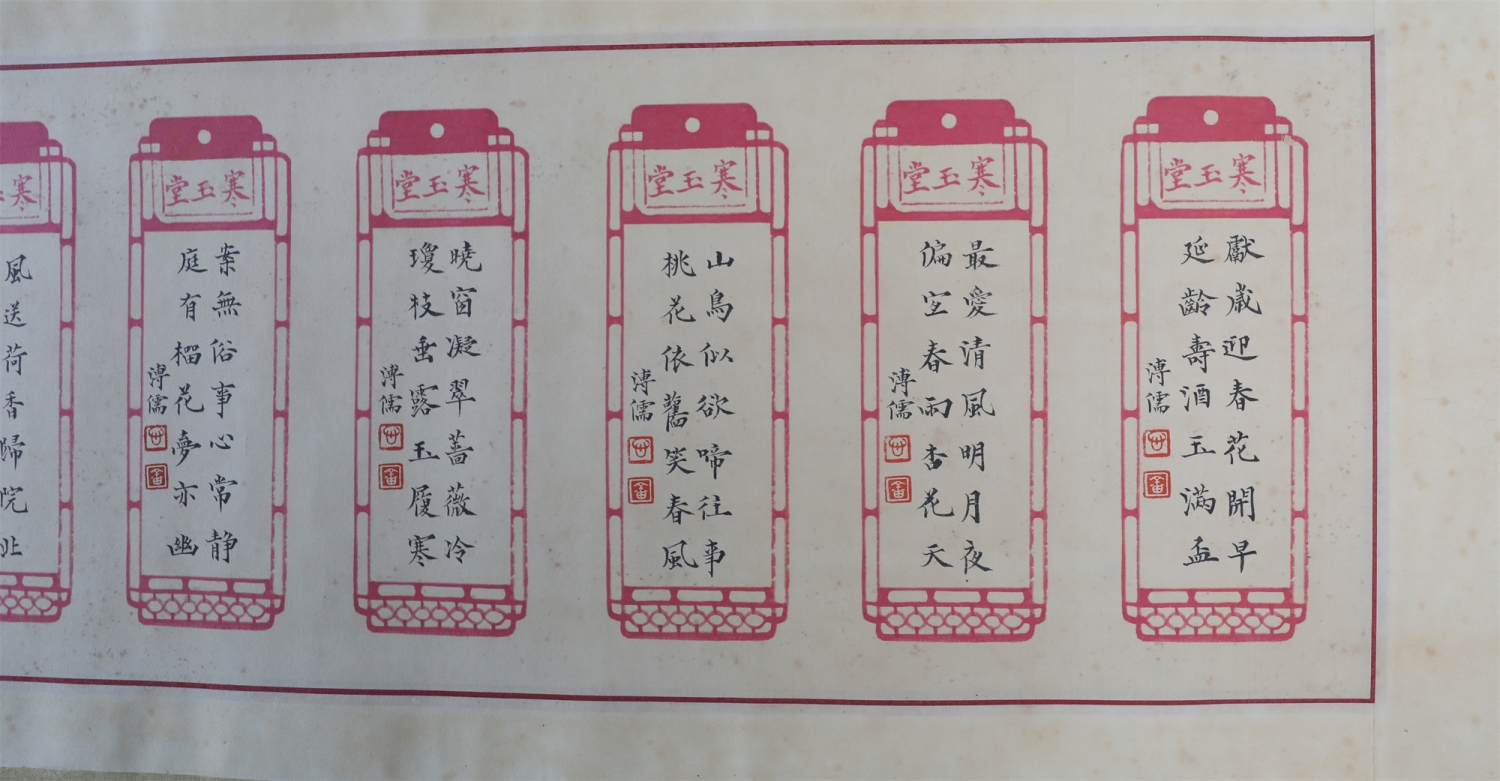 寒玉堂
獻歲迎春花開早
延齡壽酒玉滿盃
溥儒
寒玉堂
最愛清風明月夜
偏宜春雨杏花天
溥儒
寒玉堂
山鳥似欲啼往事
桃花依舊笑春風
溥儒
寒玉堂
曉窗凝翠薔薇冷
瓊枝垂露玉履寒
溥儒
寒玉堂
案無俗事心常静
庭有榴花夢亦幽
溥儒
寒
風送荷香歸院北